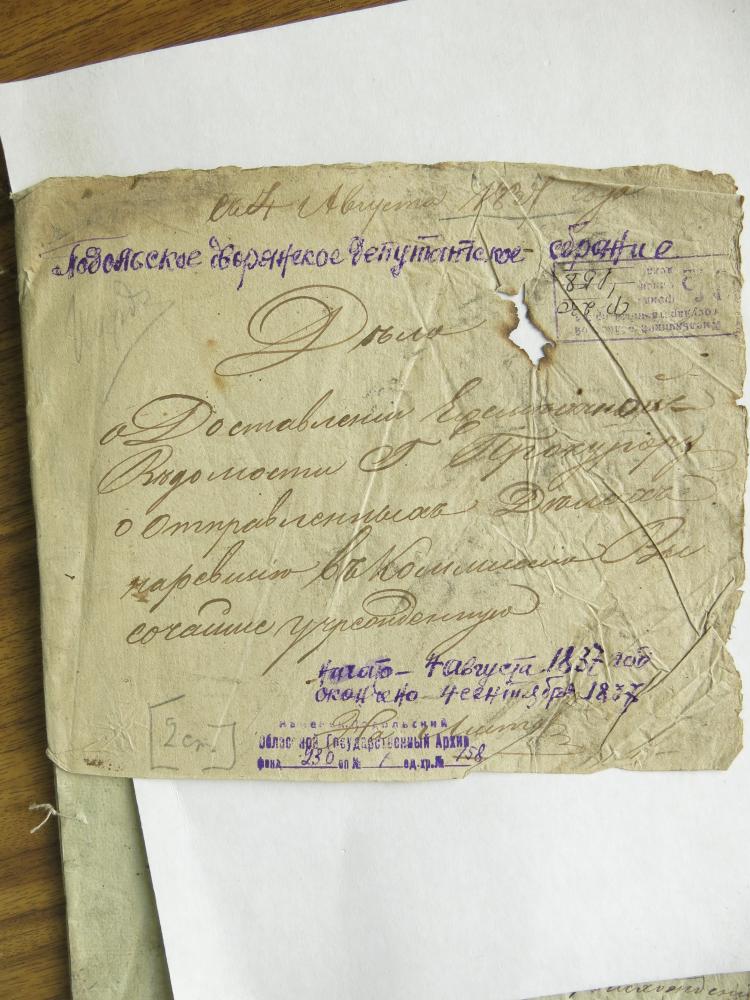 4 Августа 1837
Подольское дворянское депутатское собрание
Дѣло
о Доставленіи Ежемѣсячной
Вѣдомости Г. Прокурору
о отправленныхъ Дѣлахъ
въ Коммисію Вы
сочайше учрежденную
начато – 4 августа 1837 год
окончено – 4 сентября 1837
[2 ст.]
Областной Государственный Архив
фонд 230 оп № 1 ед. хр. № 158